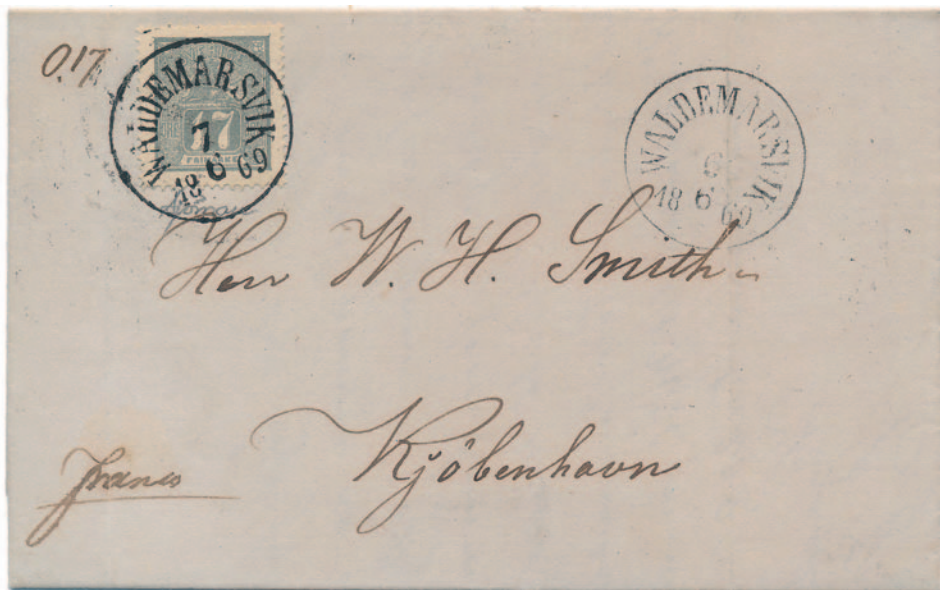 0.17
WALDEMARSVIK
7
6
18 69
17
FRIMÄRKE
WALDEMARSVIK
6
18 6 69
Herr W. H. Smith
Kjöbenhavn
franco